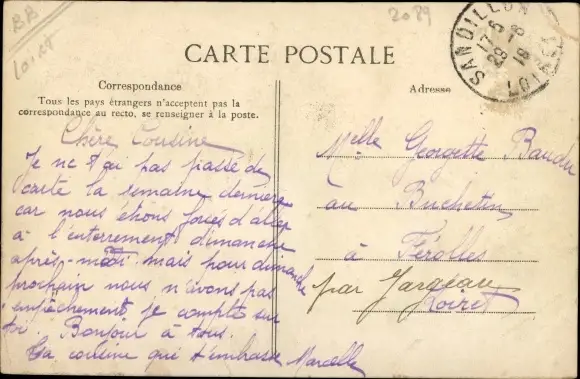 BB
Loiret
2089
SANDILLON
17 - 5
28 - 8
18
LOIRET
CARTE POSTALE
Correspondance
Tous les pays étrangers n'acceptent pas la
correspondance au recto, se renseigner à la poste.
Adresse
Chère Cousine
Je ne t'ai pas passé de
carte la semaine dernière
car nous étions forcés d'aller
à l'enterrement dimanche
après-midi mais pour dimanche
prochain nous n'avons pas
empêchement je compte sur
toi. Bonjour à tous.
Ta cousine qui t'embrasse Marcelle
Melle Georgette Baudu
au Buchetin
à Férolles
par Jargeau
Loiret